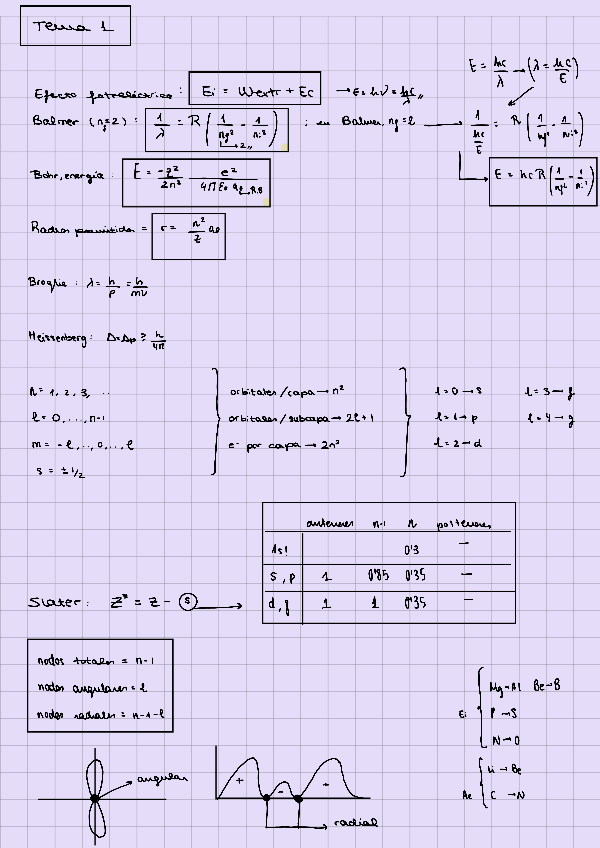 Tema 1
E = hc/λ → (λ = hc/E)
Efecto fotoeléctrico : Ei = Wextr + Ec → E = hν = hc/λ "
Balmer (nf=2) : 1/λ = R (1/nf² - 1/ni²) ; en Balmer, nf = 2 → 1/(hc/E) = R (1/nf² - 1/ni²)
↳ 2 "
Bohr, energía : E = -z²/2n² e²/4πε₀ a₀ E = hcR (1/nf² - 1/ni²)
Radios permitidos = r = n²/z a₀
Broglie : λ = h/p = h/mv
Heissenberg : Δx Δp ≥ h/4π
n = 1, 2, 3, ... orbitales/capa → n² l=0 → s l=3 → f
l = 0, ..., n-1 orbitales/subcapa → 2l+1 l=1 → p l=4 → g
m = -l, .., 0, ..., l e⁻ por capa → 2n² l=2 → d
s = ± 1/2
anteriores n-1 n posteriores
1s! 0'3 —
s, p 1 0'85 0'35 —
Slater : Z* = Z - S → d, f 1 1 0'35 —
nodos totales = n-1
nodos angulares = l
nodos radiales = n-1-l
Ei Mg→Al Be→B
P → S
N → O
Ae Li → Be
C → N
angular
+ - +
radial